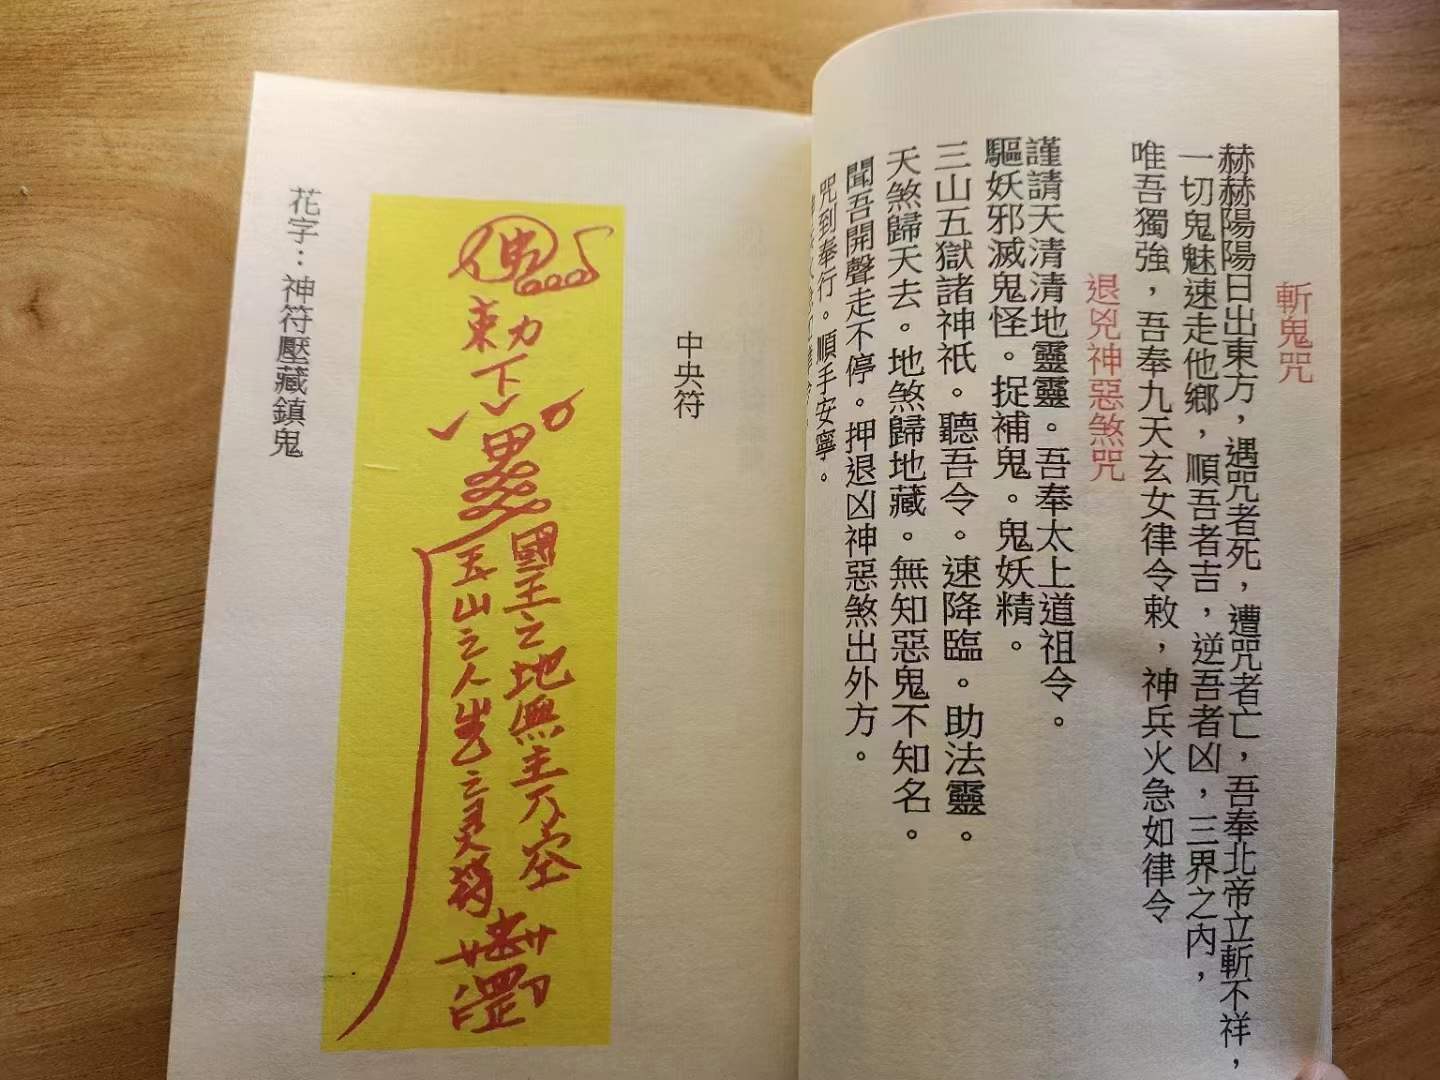 斬鬼咒
赫赫陽陽日出東方，遇咒者死，遭咒者亡，吾奉北帝立斬不祥，
一切鬼魅速走他鄉，順吾者吉，逆吾者凶，三界之內，
唯吾獨強，吾奉九天玄女律令敕，神兵火急如律令
退兇神惡煞咒
謹請天清清地靈靈。吾奉太上道祖令。
驅妖邪滅鬼怪。捉補鬼。鬼妖精。
三山五獄諸神祇。聽吾令。速降臨。助法靈。
天煞歸天去。地煞歸地藏。無知惡鬼不知名。
聞吾開聲走不停。押退凶神惡煞出外方。
咒到奉行。順手安寧。
中央符
佛
勅
下
國王之地無主乃空
五山之人
花字：神符壓藏鎮鬼